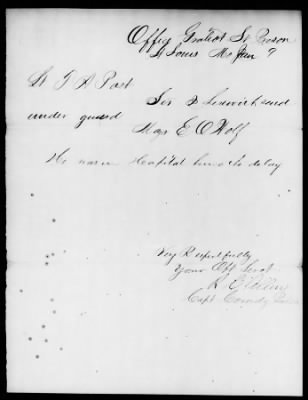 Office Gratiot St Prison
St Louis Mo Jan 9
Lt T A Post
Sir I herewith send
under guard
Maj E O Wolf
He was in Hospital hence the delay
Very Respectfully
Your Obt Servt
R C
Capt Comdg Prison